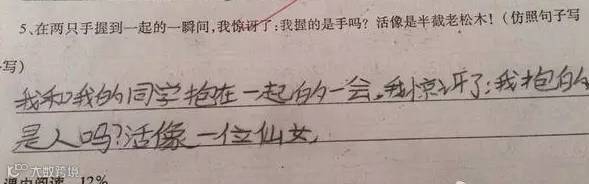 5、在两只手握到一起的一瞬间,我惊讶了:我握的是手吗?活像是半截老松木!(仿照句子写
写)
我和我的同学抱在一起的一会,我惊讶了:我抱的
是人吗?活像一位仙女,
大数跨境
课内阅读 12%